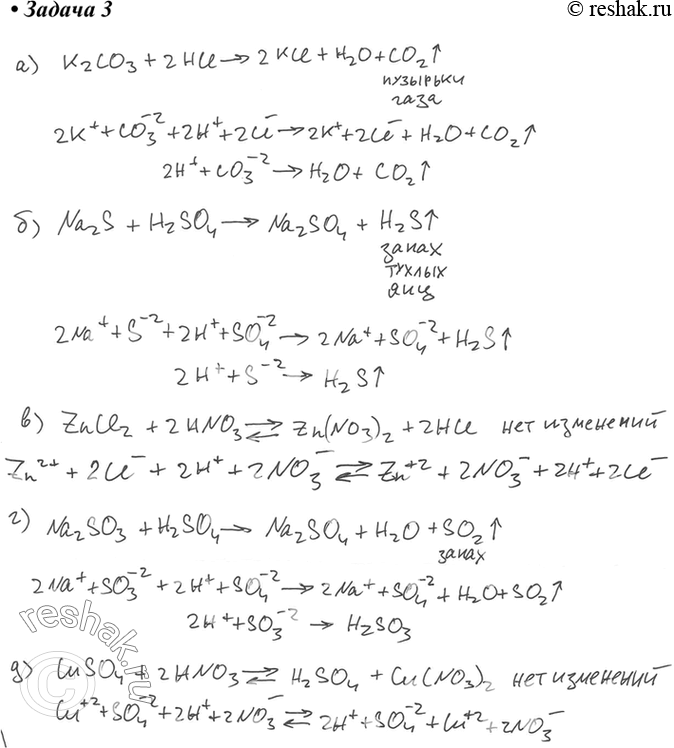 • Задача 3
© reshak.ru
а) K₂CO₃ + 2HCl → 2KCl + H₂O + CO₂↑
пузырьки
газа
2K⁺ + CO₃⁻² + 2H⁺ + 2Cl⁻ → 2K⁺ + 2Cl⁻ + H₂O + CO₂↑
2H⁺ + CO₃⁻² → H₂O + CO₂↑
б) Na₂S + H₂SO₄ → Na₂SO₄ + H₂S↑
запах
тухлых
яиц
2Na⁺ + S⁻² + 2H⁺ + SO₄⁻² → 2Na⁺ + SO₄⁻² + H₂S↑
2H⁺ + S⁻² → H₂S↑
в) ZnCl₂ + 2HNO₃ ⇄ Zn(NO₃)₂ + 2HCl нет изменений
Zn²⁺ + 2Cl⁻ + 2H⁺ + 2NO₃⁻ ⇄ Zn⁺² + 2NO₃⁻ + 2H⁺ + 2Cl⁻
г) Na₂SO₃ + H₂SO₄ → Na₂SO₄ + H₂O + SO₂↑
запах
2Na⁺ + SO₃⁻² + 2H⁺ + SO₄⁻² → 2Na⁺ + SO₄⁻² + H₂O + SO₂↑
2H⁺ + SO₃⁻² → H₂SO₃
д) CuSO₄ + 2HNO₃ ⇄ H₂SO₄ + Cu(NO₃)₂ нет изменений
Cu⁺² + SO₄⁻² + 2H⁺ + 2NO₃⁻ ⇄ 2H⁺ + SO₄⁻² + Cu⁺² + 2NO₃⁻
© reshak.ru